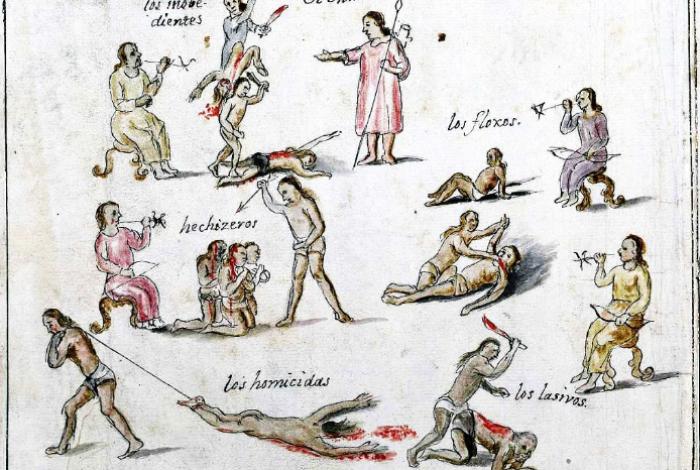 los inobe-
dientes
los floxos.
hechizeros
los homicidas
los lasivos.